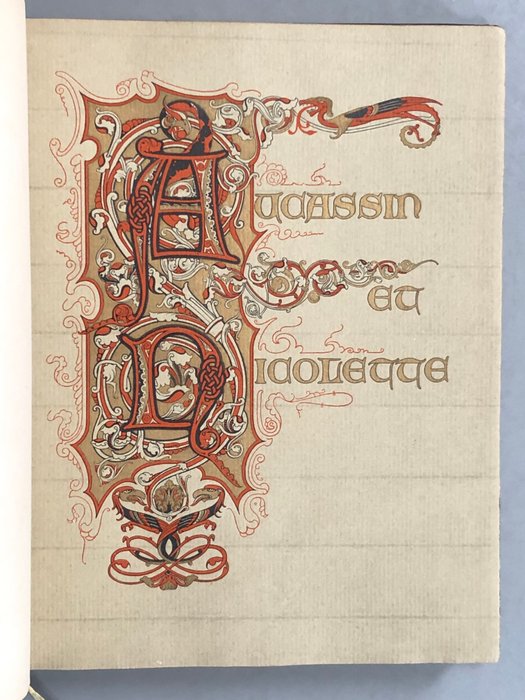 AUCASSIN
ET
NICOLETTE